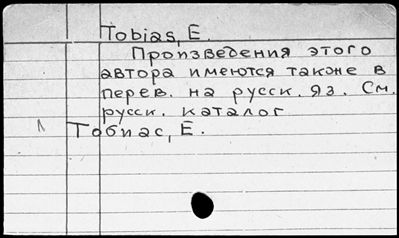 Tobias, E.
Произведения этого
автора имеются также в
перев. на русск. яз. См.
русск. каталог
Тобиас, Е.